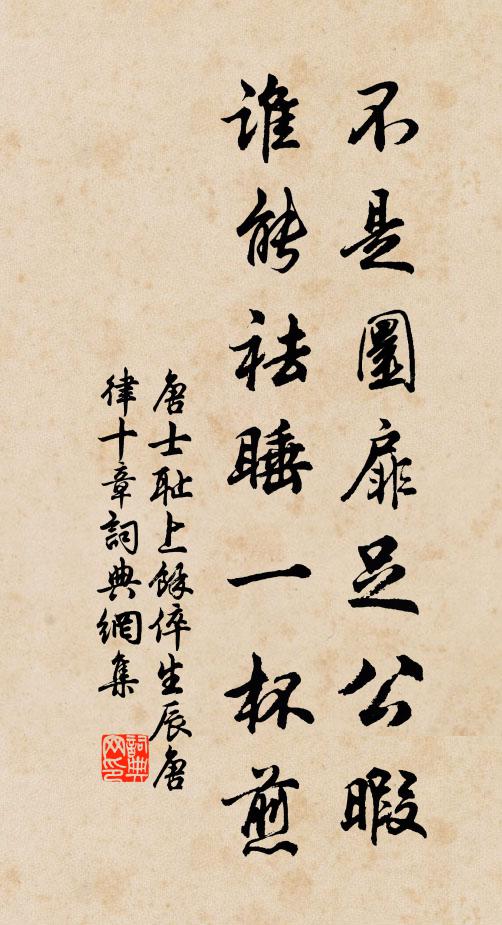 不是圜扉足公暇
誰能祛睡一杯煎
唐士耻上餘倅生辰唐
律十章詞典網集
詞典
网印